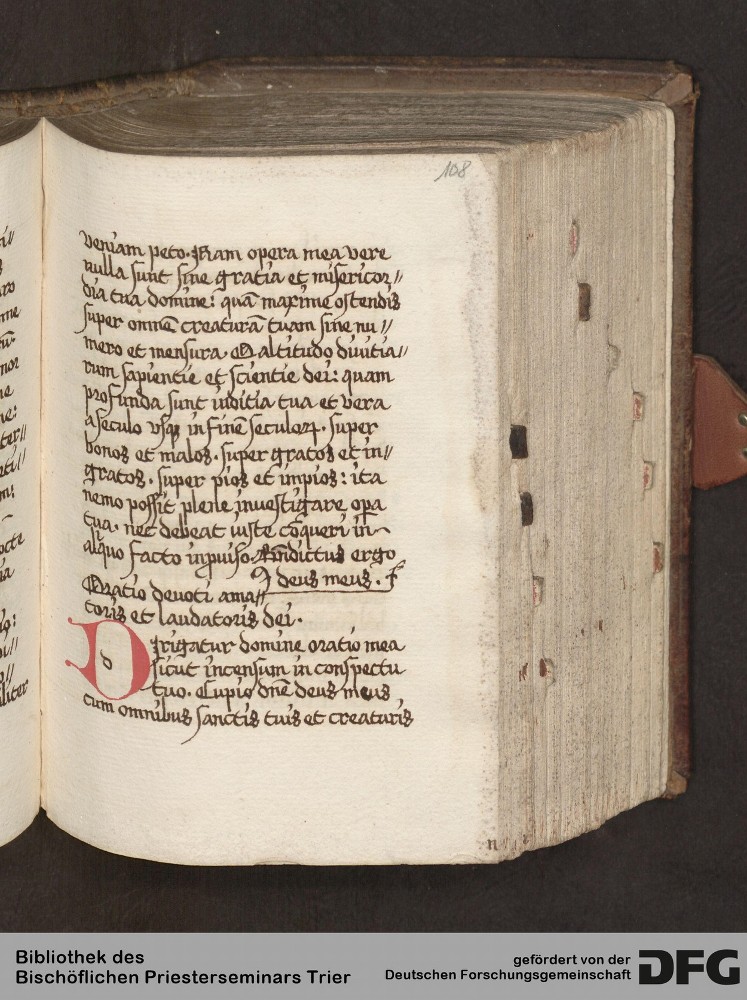 108
veniam peto. Nam opera mea vere
nulla sunt sine gratia et misericor//
dia tua domine: quā maxime ostendis
super omnē creaturā tuam sine nu//
mero et mensura. O altitudo divitia//
rum sapientie et scientie dei: quam
profunda sunt iuditia tua et vera
a seculo usqꝫ in finē seculoꝝ. super
bonos et malos. super gratos et in//
gratos. super pios et impios: ita
nemo possit plene investigare opa
tua. nec debeat iuste cōqueri in
aliquo facto inpviso. Bn̄dictus ergo
deus meus.
Oratio devoti ama//
toris et laudatoris dei.
Dirigatur domine oratio mea
sicut incensum in conspectu
tuo. Cupio dn̄e deus meus
cum omnibus sanctis tuis et creaturis
n
Bibliothek des
Bischöflichen Priesterseminars Trier
gefördert von der
Deutschen Forschungsgemeinschaft
DFG